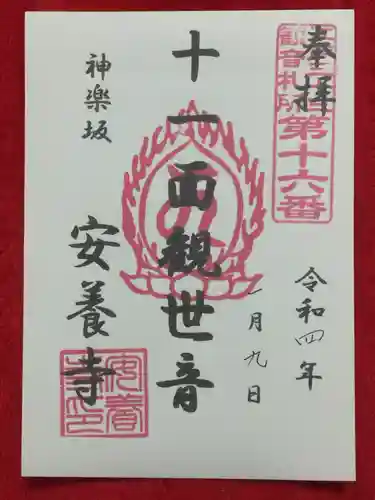 奉拝
観音札所
第十六番
令和四年
一月九日
十一面観世音
神楽坂
安養寺